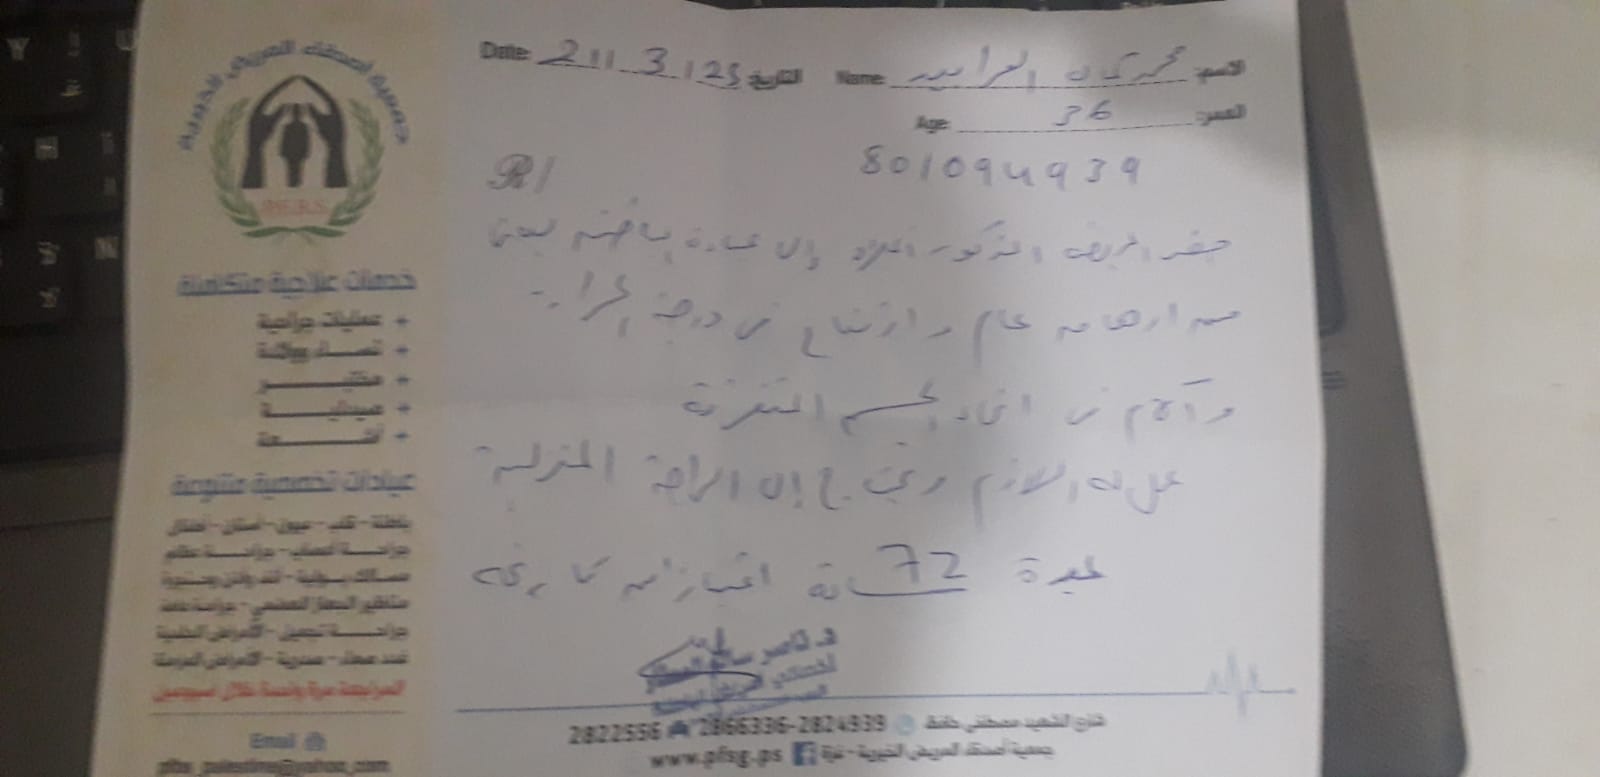 جمعية أصدقاء المريض الخيرية
P.F.B.S
خدمات علاجية متكاملة
+ عمليات جراحية
+ نساء وولادة
+ مختبر
+ صيدلية
+ أشعة
عيادات تخصصية متنوعة
باطنة - قلب - عيون - أسنان - أطفال
جراحة أعصاب - جراحة عظام
مسالك بولية - أنف وأذن وحنجرة
مناظير الجهاز الهضمي - جراحة عامة
جراحة تجميل - الأمراض الجلدية
غدد صماء - صدرية - الأمراض المزمنة
المراجعة مرة واحدة خلال أسبوعين
Email
الاسم: محمد Name:
التاريخ: 211 3 125 Date:
العمر: 36 Age:
801094939
R/
حضر المريض المذكور أعلاه إلى عيادة الباطنة يعاني
من ارهاق عام وارتفاع في درجة الحرارة
وآلام في أنحاء الجسم المتفرقة
عمل له اللازم ويحتاج إلى الراحة المنزلية
لمدة 72 ساعة اعتبارا من تاريخه
د. ناصر
شارع الشهيد مصطفى حافظ 2866336-2824939 2822556
جمعية أصدقاء المريض الخيرية - غزة www.pfsg.ps